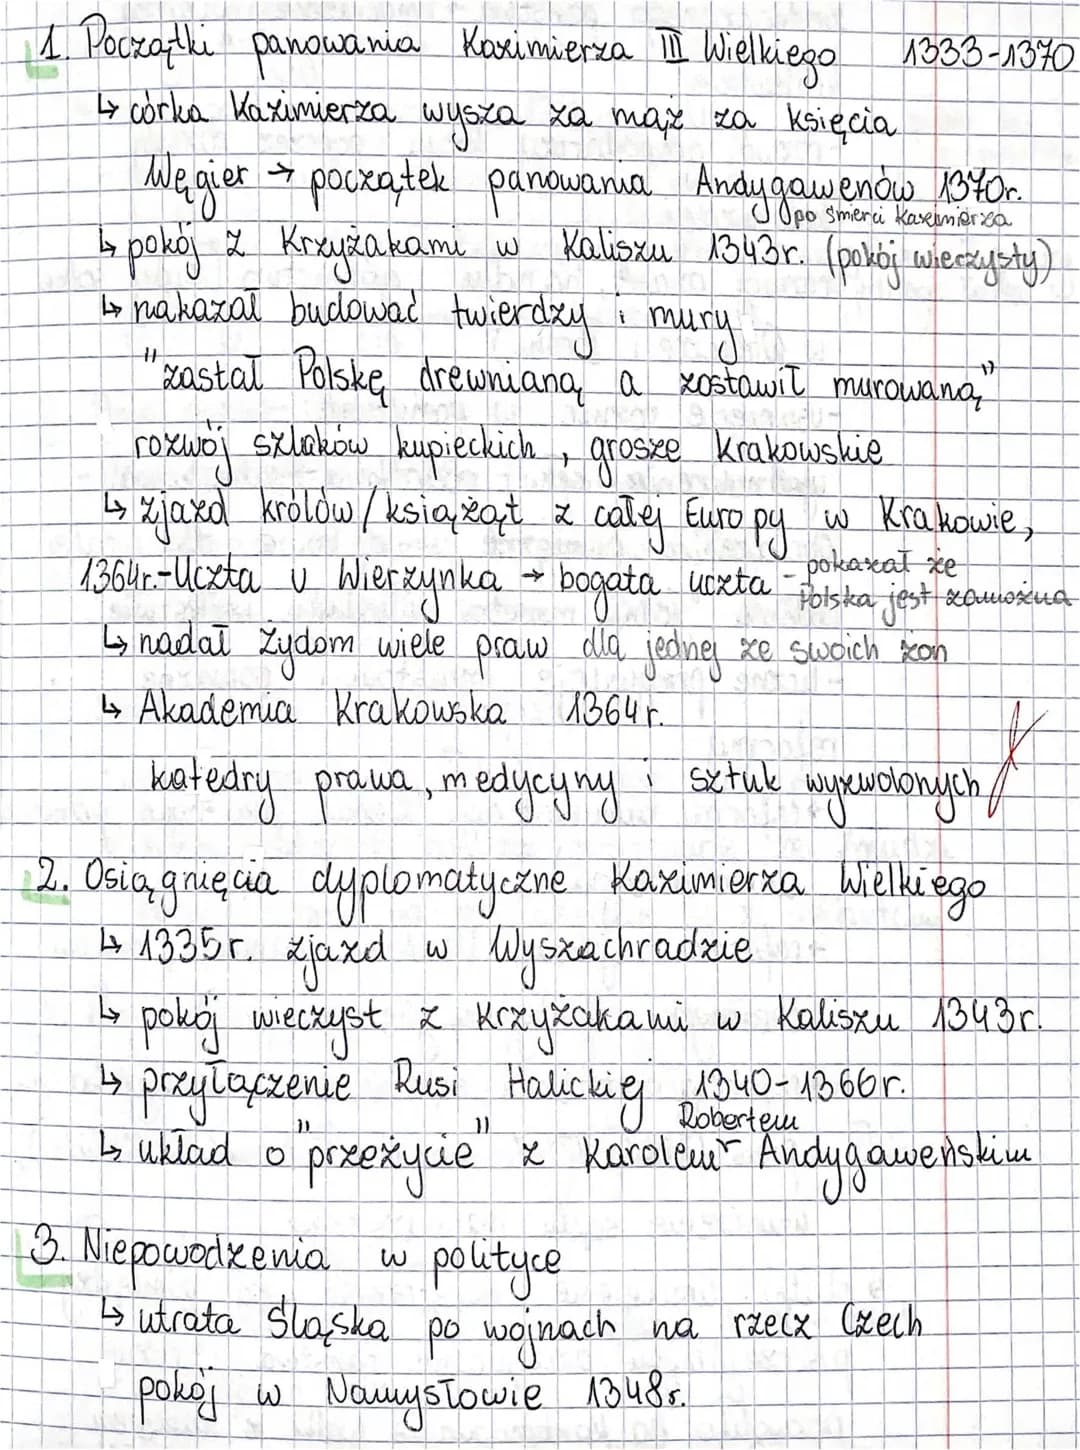 1. Początki panowania Kazimierza III Wielkiego 1333-1370
↳ córka Kazimierza wysza za mąż za księcia
Węgier → początek panowania Andygawenów 1370r.
po śmierci Kazimierza
↳ pokój z Krzyżakami w Kaliszu 1343r. (pokój wieczysty)
↳ nakazał budować twierdzy i mury
"zastał Polskę drewnianą a zostawił murowaną"
rozwój szlaków kupieckich, grosze Krakowskie
↳ zjazd królów/książąt z całej Europy w Krakowie,
pokazał że
1364r.-Uczta u Wierzynka → bogata uczta - Polska jest zamożna
↳ nadał Żydom wiele praw dla jednej ze swoich żon
↳ Akademia Krakowska 1364r.
katedry prawa, medycyny i sztuk wyzwolonych
2. Osiągnięcia dyplomatyczne Kazimierza Wielkiego
↳ 1335r. zjazd w Wyszachradzie
↳ pokój wieczyst z Krzyżakami w Kaliszu 1343r.
↳ przyłączenie Rusi Halickiej 1340-1366r.
Robertem
↳ układ o "przeżycie" z Karolem Andygaweńskim
3. Niepowodzenia w polityce
↳ utrata Śląska po wojnach na rzecz Czech
pokój w Namysłowie 1348r.